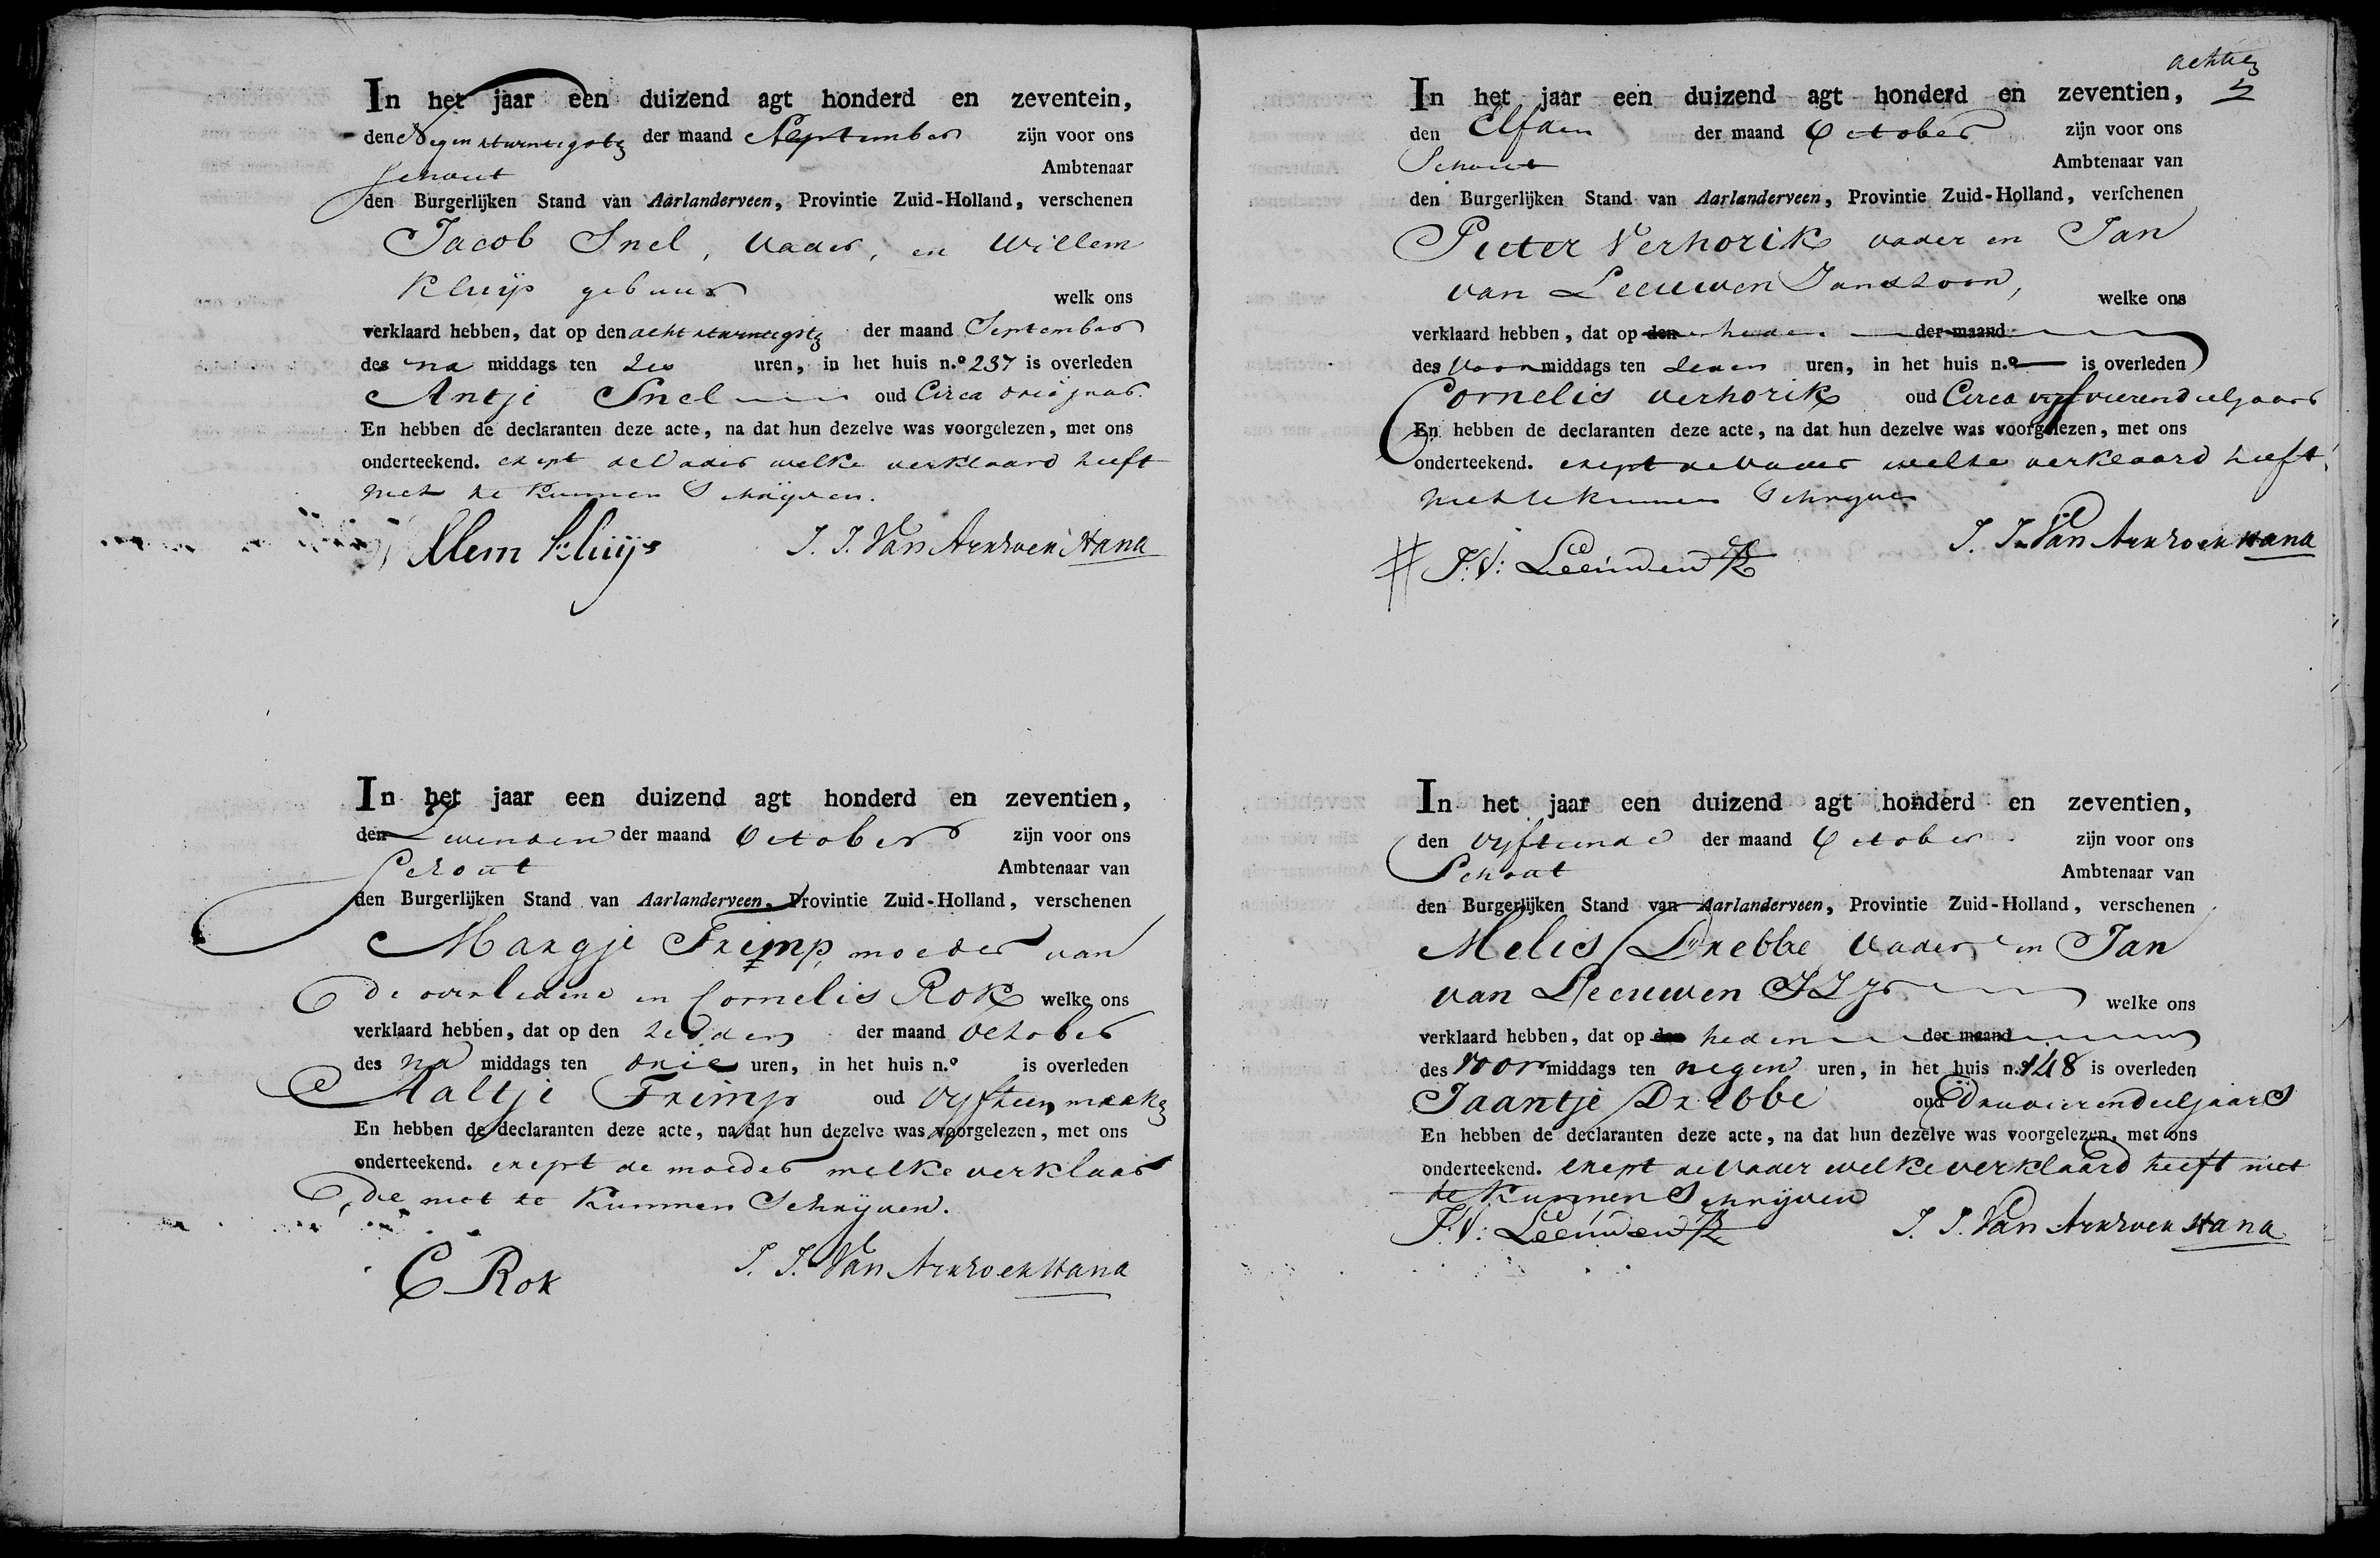 In het jaar een duizend agt honderd en zeventein,
den Negen twintigste der maand September zijn voor ons
Schout Ambtenaar
den Burgerlijken Stand van Aarlanderveen, Provintie Zuid-Holland, verschenen
Jacob Snel, Vader, en Willem
Kluijs gebuur welk ons
verklaard hebben, dat op den acht twintigste der maand September
des na middags ten Zes uren, in het huis n.o 237 is overleden
Antje Snel oud Circa drie jaar.
En hebben de declaranten deze acte, na dat hun dezelve was voorgelezen, met ons
onderteekend. exept de Vader welke verklaard heeft
niet te kunnen Schrijven.
Willem Kluijs J. J. Van Arkzoen Hana
In het jaar een duizend agt honderd en zeventien,
den Zevenden der maand October zijn voor ons
Schout Ambtenaar van
den Burgerlijken Stand van Aarlanderveen, Provintie Zuid-Holland, verschenen
Margje Frimp, moeder van
de overledene en Cornelis Rok welke ons
verklaard hebben, dat op den zesden der maand October
des na middags ten drie uren, in het huis n.o is overleden
Aaltje Frimp oud Vyftien weeke
En hebben de declaranten deze acte, na dat hun dezelve was voorgelezen, met ons
onderteekend. exept de moeder welke verklaar
de niet te kunnen Schrijven.
C Rok J. J. Van Arkzoen Hana
achtien
In het jaar een duizend agt honderd en zeventien,
den Elfden der maand October zijn voor ons
Schout Ambtenaar van
den Burgerlijken Stand van Aarlanderveen, Provintie Zuid-Holland, verschenen
Pieter Verhorik vader en Jan
van Leeuwen Janszoon, welke ons
verklaard hebben, dat op den heden der maand
des Voor middags ten Zeven uren, in het huis n.o is overleden
Cornelis Verhorik oud Circa vyf vierendeeljaars
En hebben de declaranten deze acte, na dat hun dezelve was voorgelezen, met ons
onderteekend. exept de Vader welke verklaard heeft
niet te kunnen Schryven
J: V: Leeuwen JZ J. J. Van Arkzoen Hana
In het jaar een duizend agt honderd en zeventien,
den Vyftiende der maand October zijn voor ons
Schout Ambtenaar van
den Burgerlijken Stand van Aarlanderveen, Provintie Zuid-Holland, verschenen
Melis Drebbe Vader, en Jan
van Leeuwen welke ons
verklaard hebben, dat op den heden der maand
des Voor middags ten negen uren, in het huis n.o 148 is overleden
Jaantje Drebbe oud Drievierendeeljaars
En hebben de declaranten deze acte, na dat hun dezelve was voorgelezen, met ons
onderteekend. exept de Vader welke verklaard heeft niet
te kunnen Schrijven
J: V: Leeuwen JZ J. J. Van Arkzoen Hana